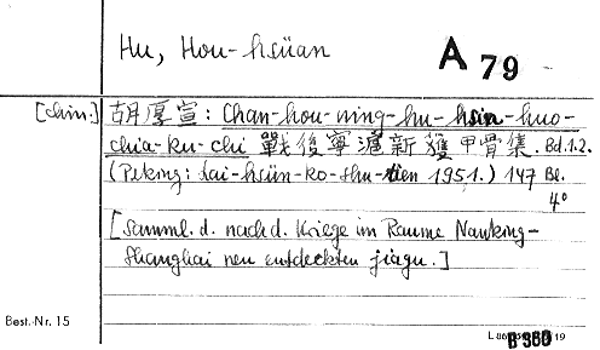 Hu, Hou-hsüan
A 79
[chin.] 胡厚宣: Chan-hou-ning-hu-hsin-huo-
chia-ku-chi 戰後寧滬新獲甲骨集. Bd.1.2.
(Peking: Lai-hsün-ko-shu-tien 1951.) 147 Bl.
4°
[Samml. d. nach d. Kriege im Raume Nanking-
Shanghai neu entdeckten jiagu.]
Best.-Nr. 15
B 360 19